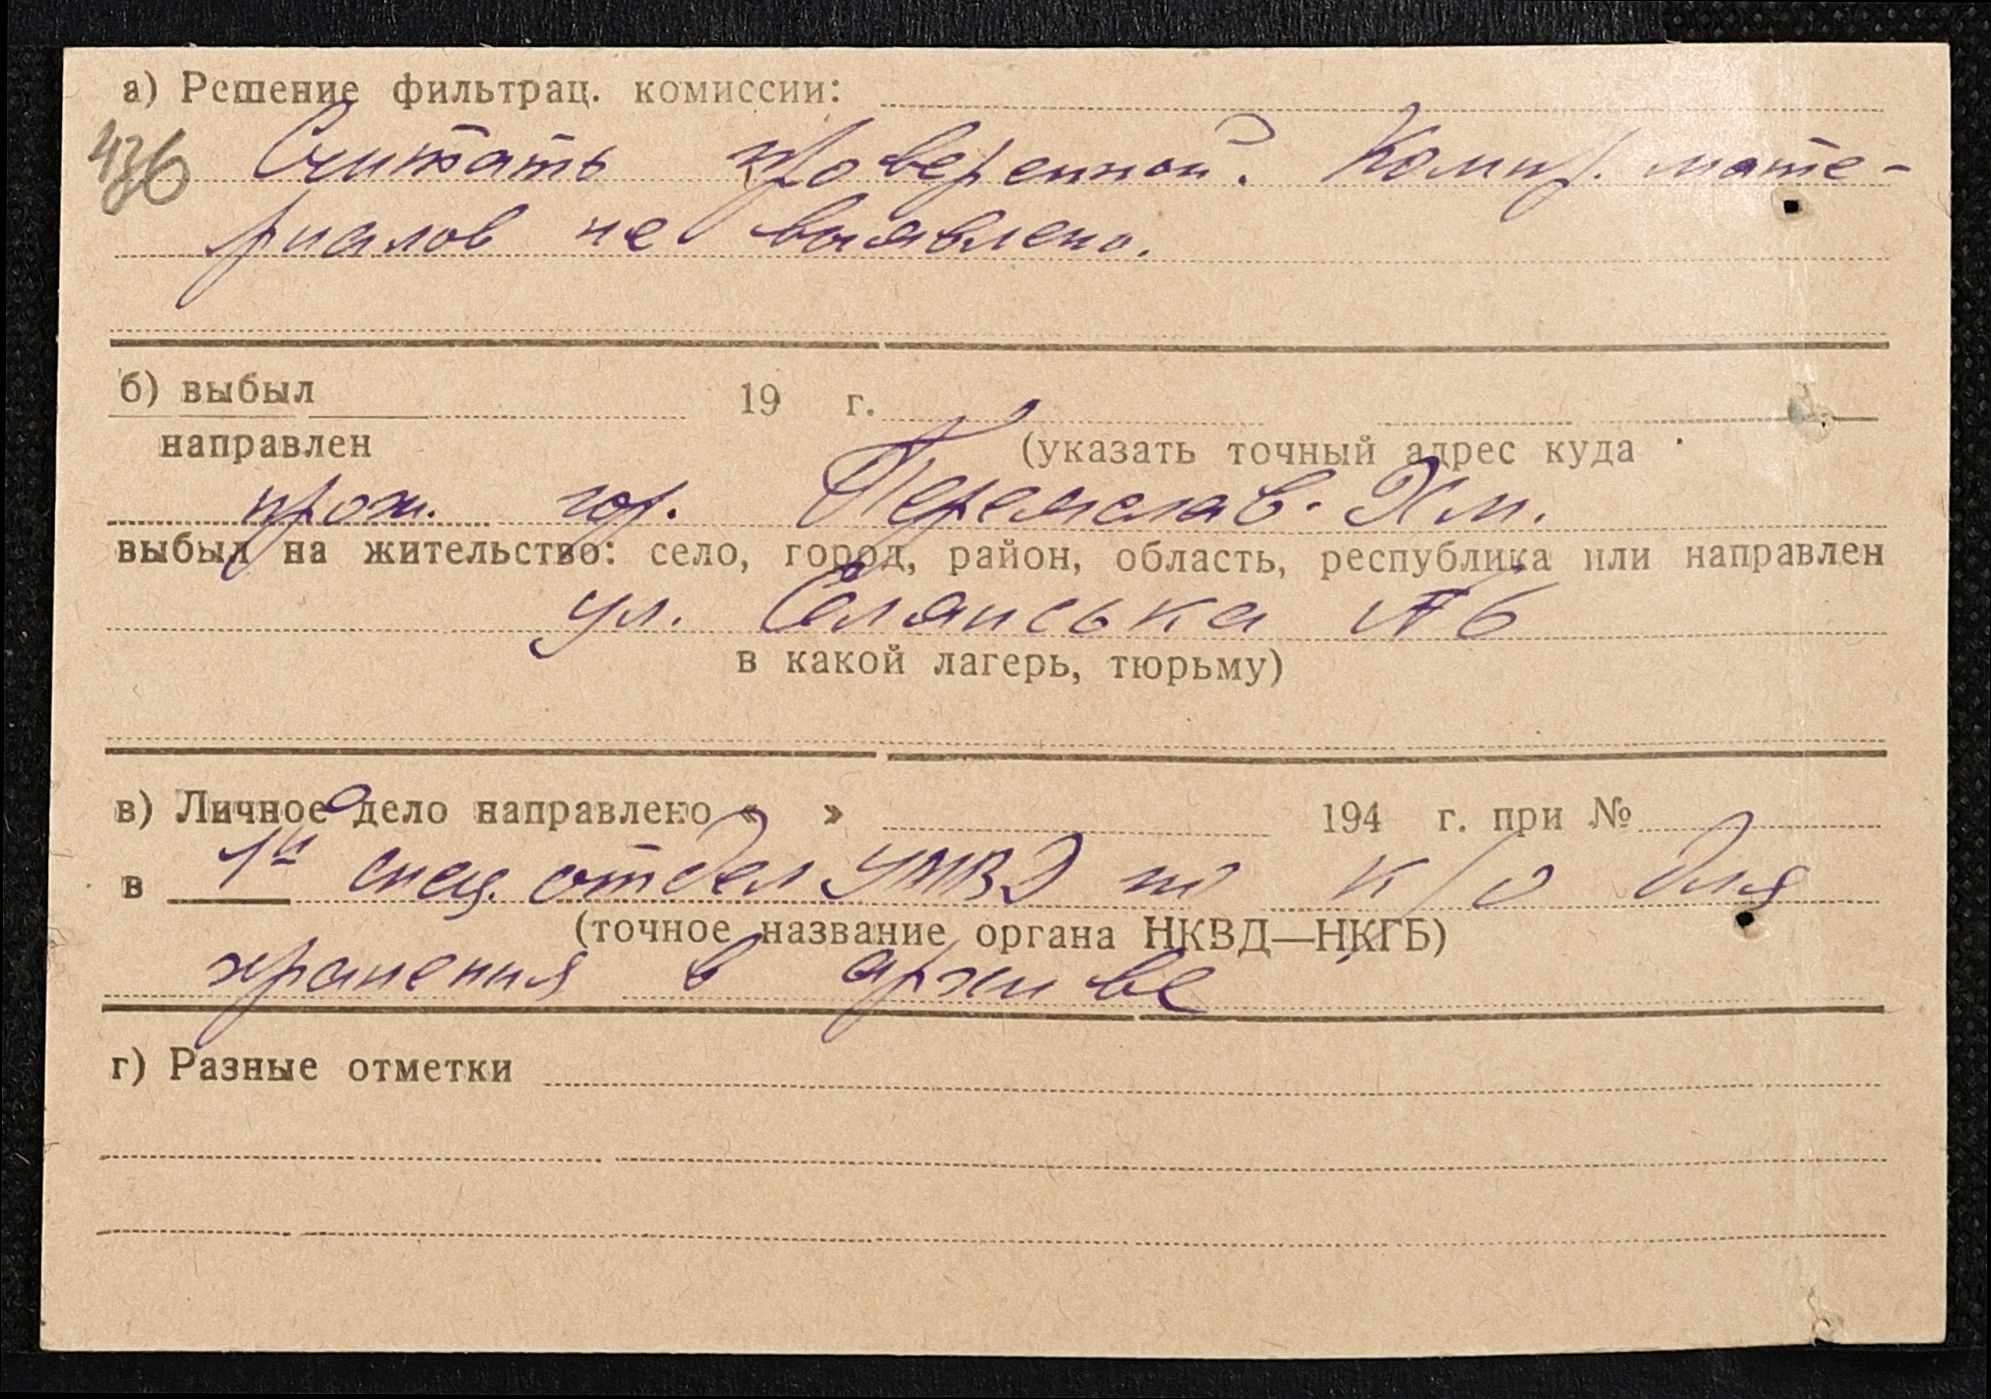 а) Решение фильтрац. комиссии:
436
Считать проверенной. Компр. мате-
риалов не выявлено.
б) выбыл 19 г.
направлен (указать точный адрес куда
прож. гор. Переяслав-Хм.
выбыл на жительство: село, город, район, область, республика или направлен
ул. Селянська
в какой лагерь, тюрьму)
в) Личное дело направлено « » 194 г. при №
в 1й спец. отдел УМВД по К/О для
(точное название органа НКВД—НКГБ)
хранения в архиве
г) Разные отметки